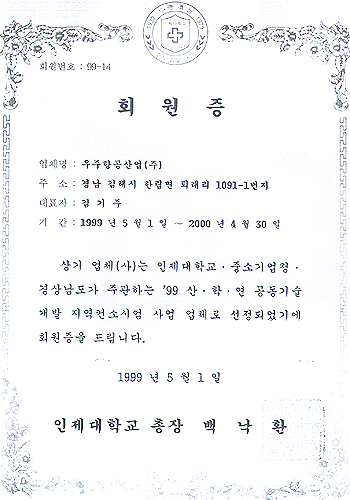 회원번호 : 99-14
회 원 증
업체명 : 우주항공산업(주)
주 소 : 경남 김해시 한림면 퇴래리 1091-1번지
대표자 : 김 기 주
기 간 : 1999 년 5 월 1 일 ~ 2000 년 4 월 30 일
상기 업체(사)는 인제대학교·중소기업청·
경상남도가 주관하는 '99 산·학·연 공동기술
개발 지역컨소시엄 사업 업체로 선정되었기에
회원증을 드립니다.
1999 년 5 월 1 일
인제대학교 총장 백 낙 환